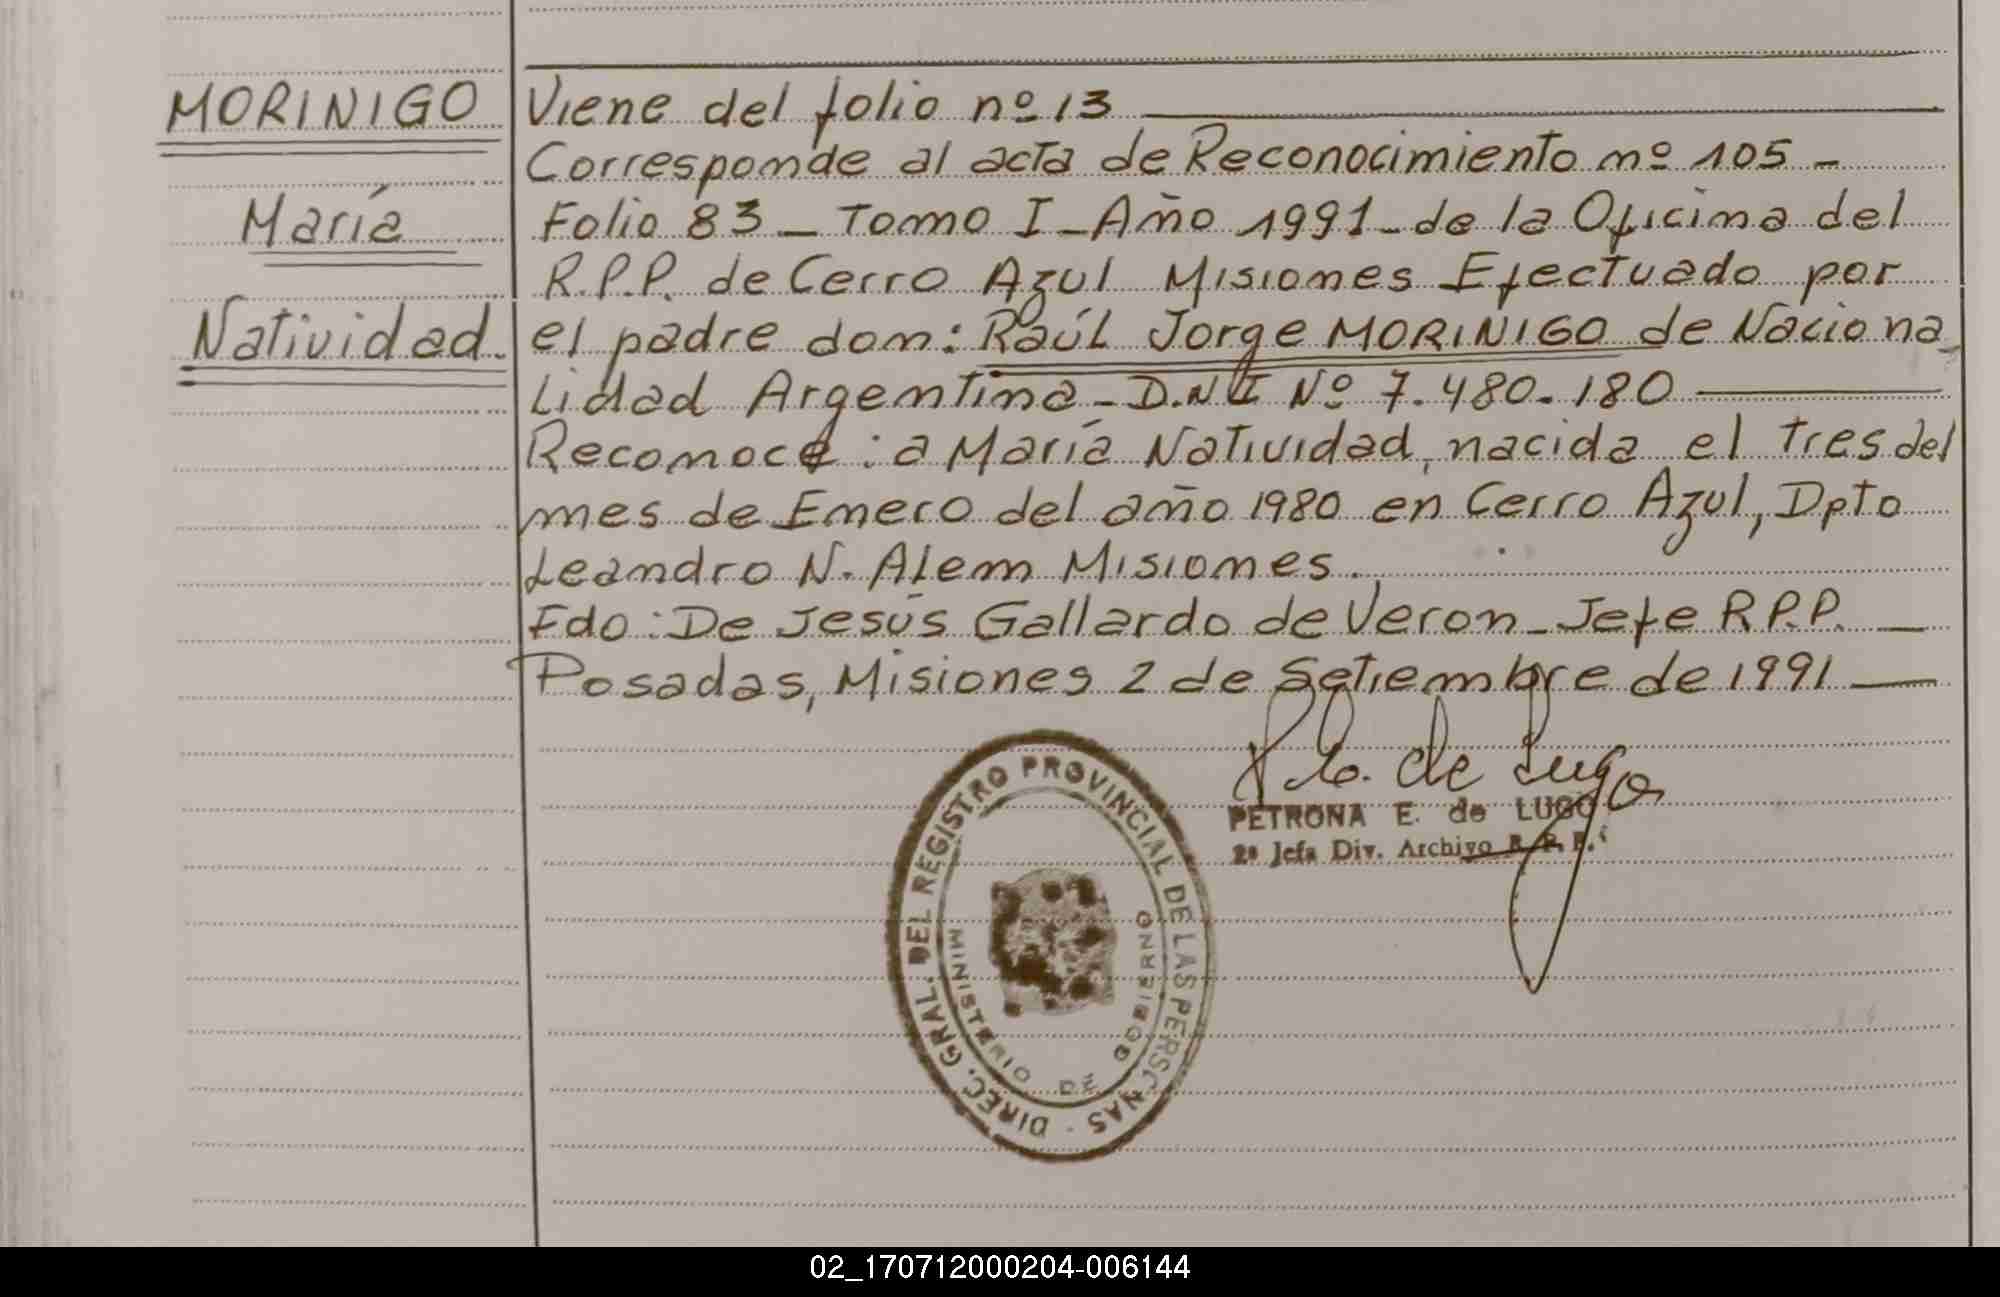 MORINIGO
María
Natividad.
Viene del folio nº 13
Corresponde al acta de Reconocimiento nº 105 -
Folio 83 - Tomo I - Año 1991 - de la Oficina del
R.P.P. de Cerro Azul Misiones Efectuado por
el padre don: Raúl Jorge MORINIGO de Naciona
lidad Argentina - D.N.I Nº 7.480.180
Reconoce: a María Natividad, nacida el tres del
mes de Enero del año 1980 en Cerro Azul, Dpto
Leandro N. Alem Misiones.
Fdo: De Jesús Gallardo de Veron - Jefe R.P.P.
Posadas, Misiones 2 de Setiembre de 1991
de Lugo
PETRONA E. de LUGO
2ª Jefa Div. Archivo R. P. P.
DIREC. GRAL. DEL REGISTRO PROVINCIAL DE LAS PERSONAS -
MINISTERIO DE GOBIERNO
02_170712000204-006144